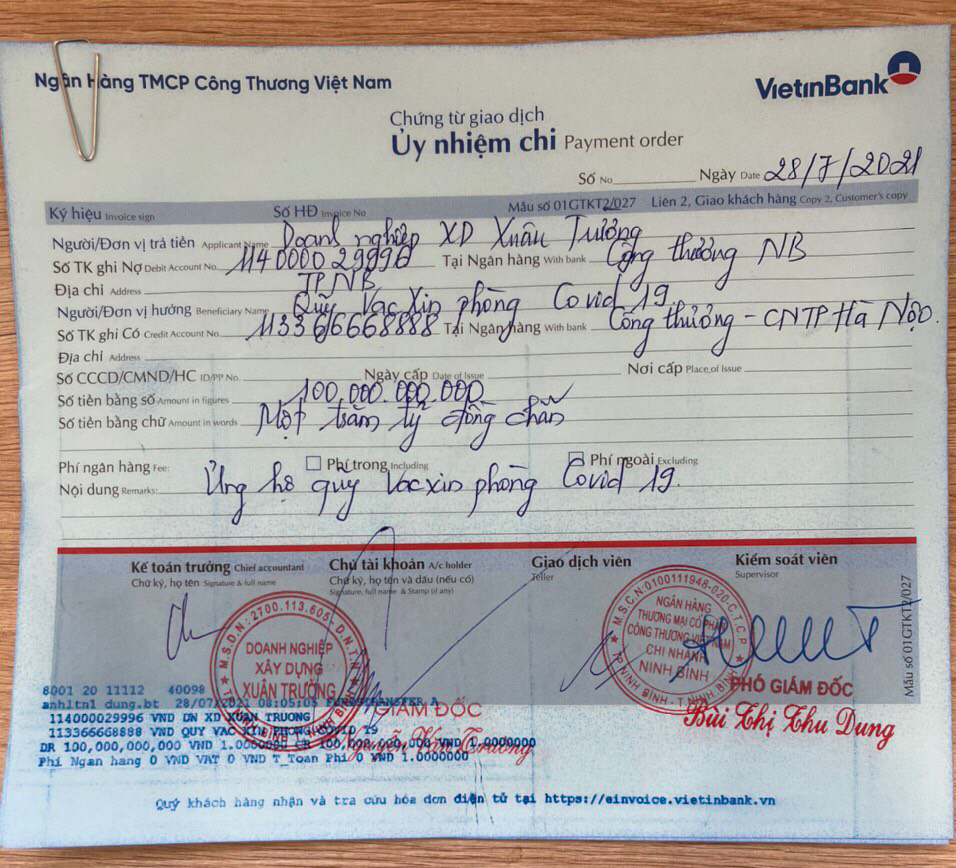 Ngân Hàng TMCP Công Thương Việt Nam
VietinBank
Chứng từ giao dịch
Ủy nhiệm chi Payment order
Số No Ngày Date 28/7/2021
Ký hiệu Invoice sign Số HĐ Invoice No Mẫu số 01GTKT2/027 Liên 2, Giao khách hàng Copy 2, Customer's copy
Người/Đơn vị trả tiền Applicant Name Doanh nghiệp XD Xuân Trường
Số TK ghi Nợ Debit Account No. 114000029996 Tại Ngân hàng With bank Công thương NB
Địa chỉ Address TPNB
Người/Đơn vị hưởng Beneficiary Name Quỹ Vacxin phòng Covid 19.
Số TK ghi Có Credit Account No. 113366668888 Tại Ngân hàng With bank Công thương - CNTP Hà Nội.
Địa chỉ Address
Số CCCD/CMND/HC ID/PP No. Ngày cấp Date of Issue Nơi cấp Place of Issue
Số tiền bằng số Amount in figures 100.000.000.000
Số tiền bằng chữ Amount in words Một trăm tỷ đồng chẵn
Phí ngân hàng Fee: Phí trong Including Phí ngoài Excluding
Nội dung Remarks: Ủng hộ quỹ Vacxin phòng Covid 19.
Kế toán trưởng Chief accountant Chủ tài khoản A/c holder Giao dịch viên Kiểm soát viên
Chữ ký, họ tên Signature & full name Chữ ký, họ tên và dấu (nếu có) Teller Supervisor
Signature, full name & Stamp (if any)
Mẫu số 01GTKT2/027
M.S.D.N: 2700.113.605
DOANH NGHIỆP
XÂY DỰNG
XUÂN TRƯỜNG
M.S.C.N:0100111948-020-C.T.C.P
NGÂN HÀNG
THƯƠNG MẠI CỔ PHẦN
CÔNG THƯƠNG VIỆT NAM
CHI NHÁNH
NINH BÌNH
TP NINH BÌNH - T NINH BÌNH
PHÓ GIÁM ĐỐC
Bùi Thị Thu Dung
GIÁM ĐỐC
Nguyễn Văn Trường
8001 20 11112 40098
anhltn1 dung.bt 28/07/2021 08:05:08
114000029996 VND DN XD XUAN TRUONG
113366668888 VND QUY VAC XIN PHONG COVID 19
DR 100,000,000,000 VND 1.0000000 CR 100,000,000,000 VND 1.0000000
Phi Ngan hang 0 VND VAT 0 VND T_Toan Phi 0 VND 1.0000000
Quý khách hàng nhận và tra cứu hóa đơn điện tử tại https://einvoice.vietinbank.vn